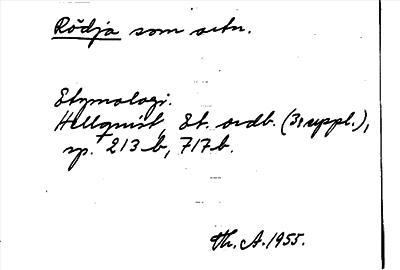 Rödja som ortn.
Etymologi.
Hellquist, Et. ordb. (3; uppl.),
sp. 213 b, 717 b.
Th. A. 1955.